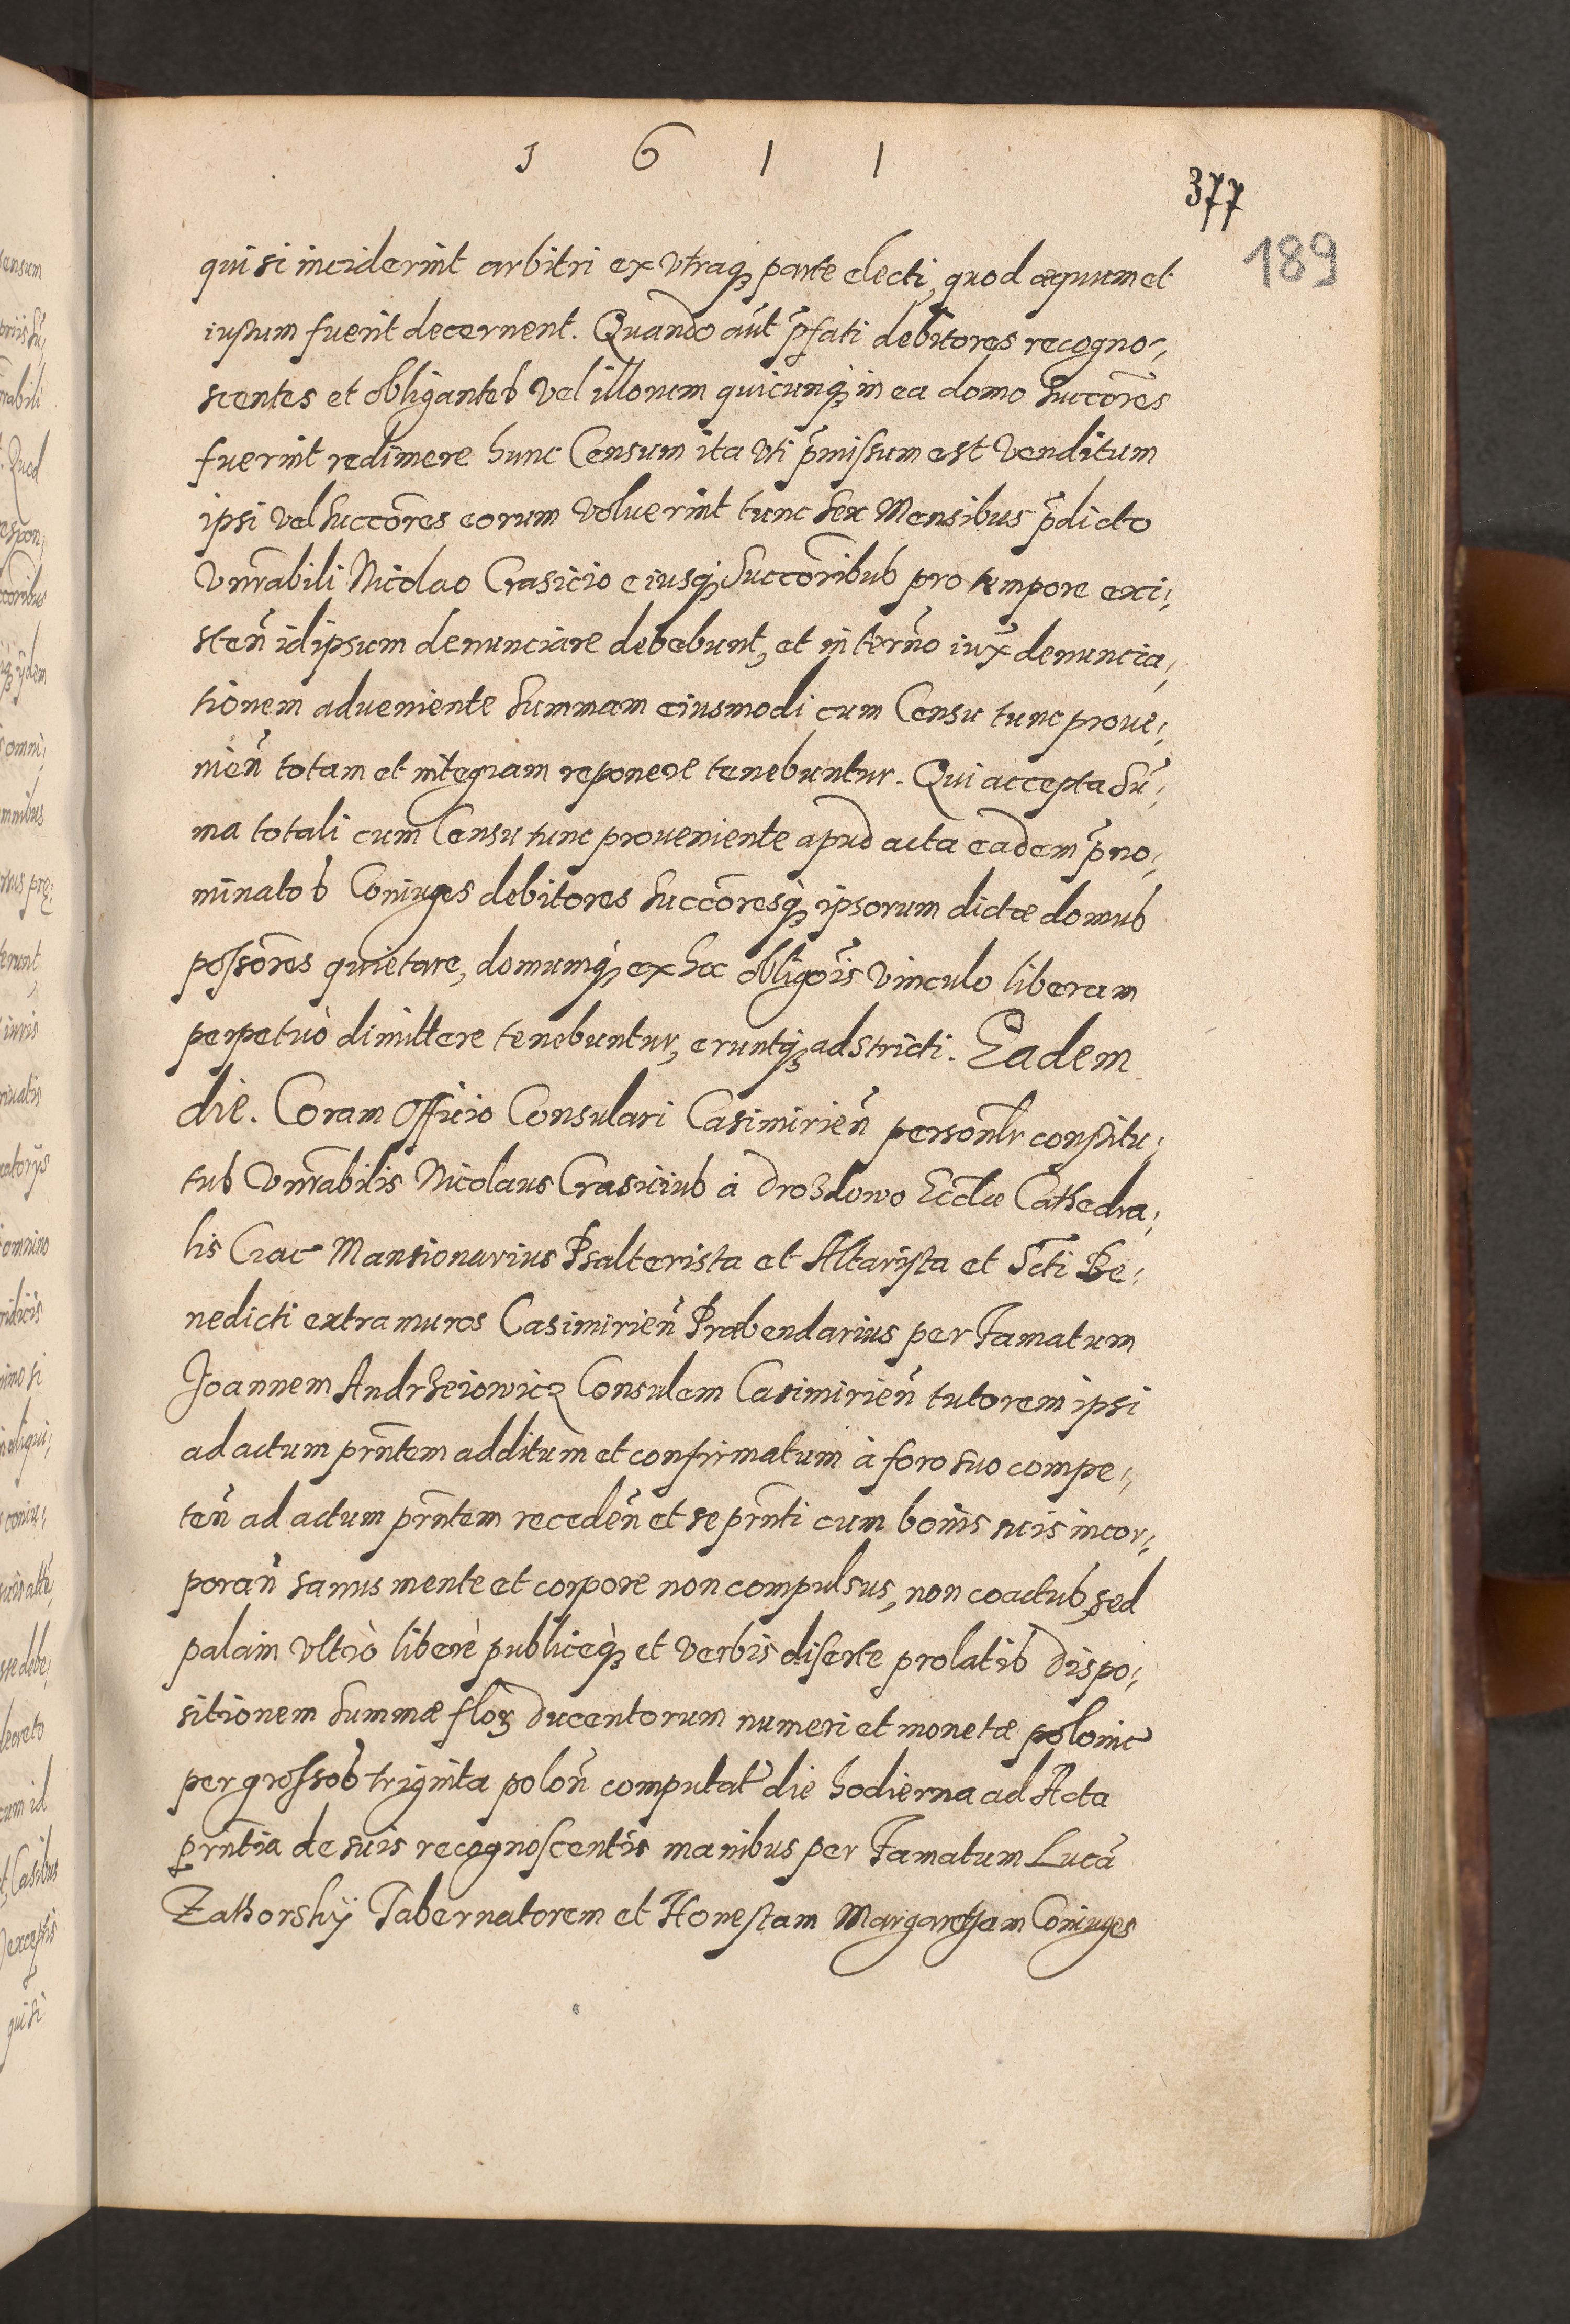 1 6 1 1
377
189
qui si inciderint arbitri ex vtraqȝ parte electi, quod æquum et
iustum fuerit decernent. Quando aũt p̃fati debitores recogno-
scentes et obligantes vel illorum quicunqȝ in ea domo succõres
fuerint redimere hunc Censum ita vti p̃missum est venditum
ipsi vel succõres eorum voluerint tunc sex Mensibus p̃dicto
Vnrãbili Nicolao Crasicio eiusqȝ Succõribus pro tempore exi-
steñ idipsum denunciare debebunt, et in terño iux̃ denuncia-
tionem adueniente summam eiusmodi cum Censu tunc proue-
nieñ totam et integram reponere tenebuntur. Qui accepta sũ-
ma totali cum Censu tunc proueniente apud acta eadem p̃no-
minatos Coniuges debitores succõresqȝ ipsorum dictæ domus
possõres quietare, domumqȝ ex hoc obligõis vinculo liberam
perpetuò dimittere tenebuntur, eruntqȝ adstricti. Eadem
die. Coram Officio Consulari Casimirieñ persoñlr constitu-
tus Vnrãbilis Nicolaus Crasicius à Drozdowo Eccl̃æ Cathedra-
lis Crac̃ Mansionarius Psalterista et Altarista et Scti Be-
nedicti extra muros Casimirieñ Præbendarius per Famatum
Joannem Andrzeiowicz Consulem Casimirieñ tutorem ipsi
ad actum prñtem additum et confirmatum à foro suo compe-
teñ ad actum prñtem recedeñ et se prñti cum bonis suis incor-
porañ sanus mente et corpore non compulsus, non coactus, sed
palam vltrò liberè publiceqȝ et verbis diserte prolatis dispo-
sitionem summæ floȝ ducentorum numeri et monetæ polonic̃
per grossos triginta poloñ computat̃ die hodierna ad Acta
prñtia de suis recognoscentis manibus per Famatum Lucã
Zathorskÿ Tabernatorem et Honestam Margaretam Coniuges